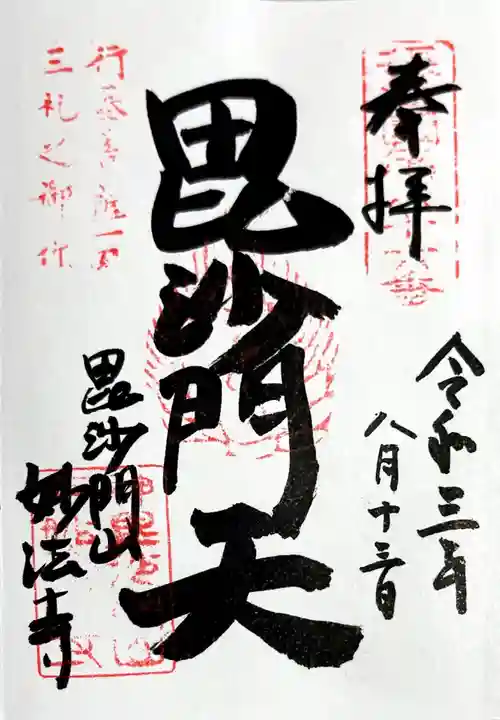 奉拝
令和三年
八月十三日
毘沙門天
行基菩薩一刀
三礼之御作
毘沙門山
妙法寺